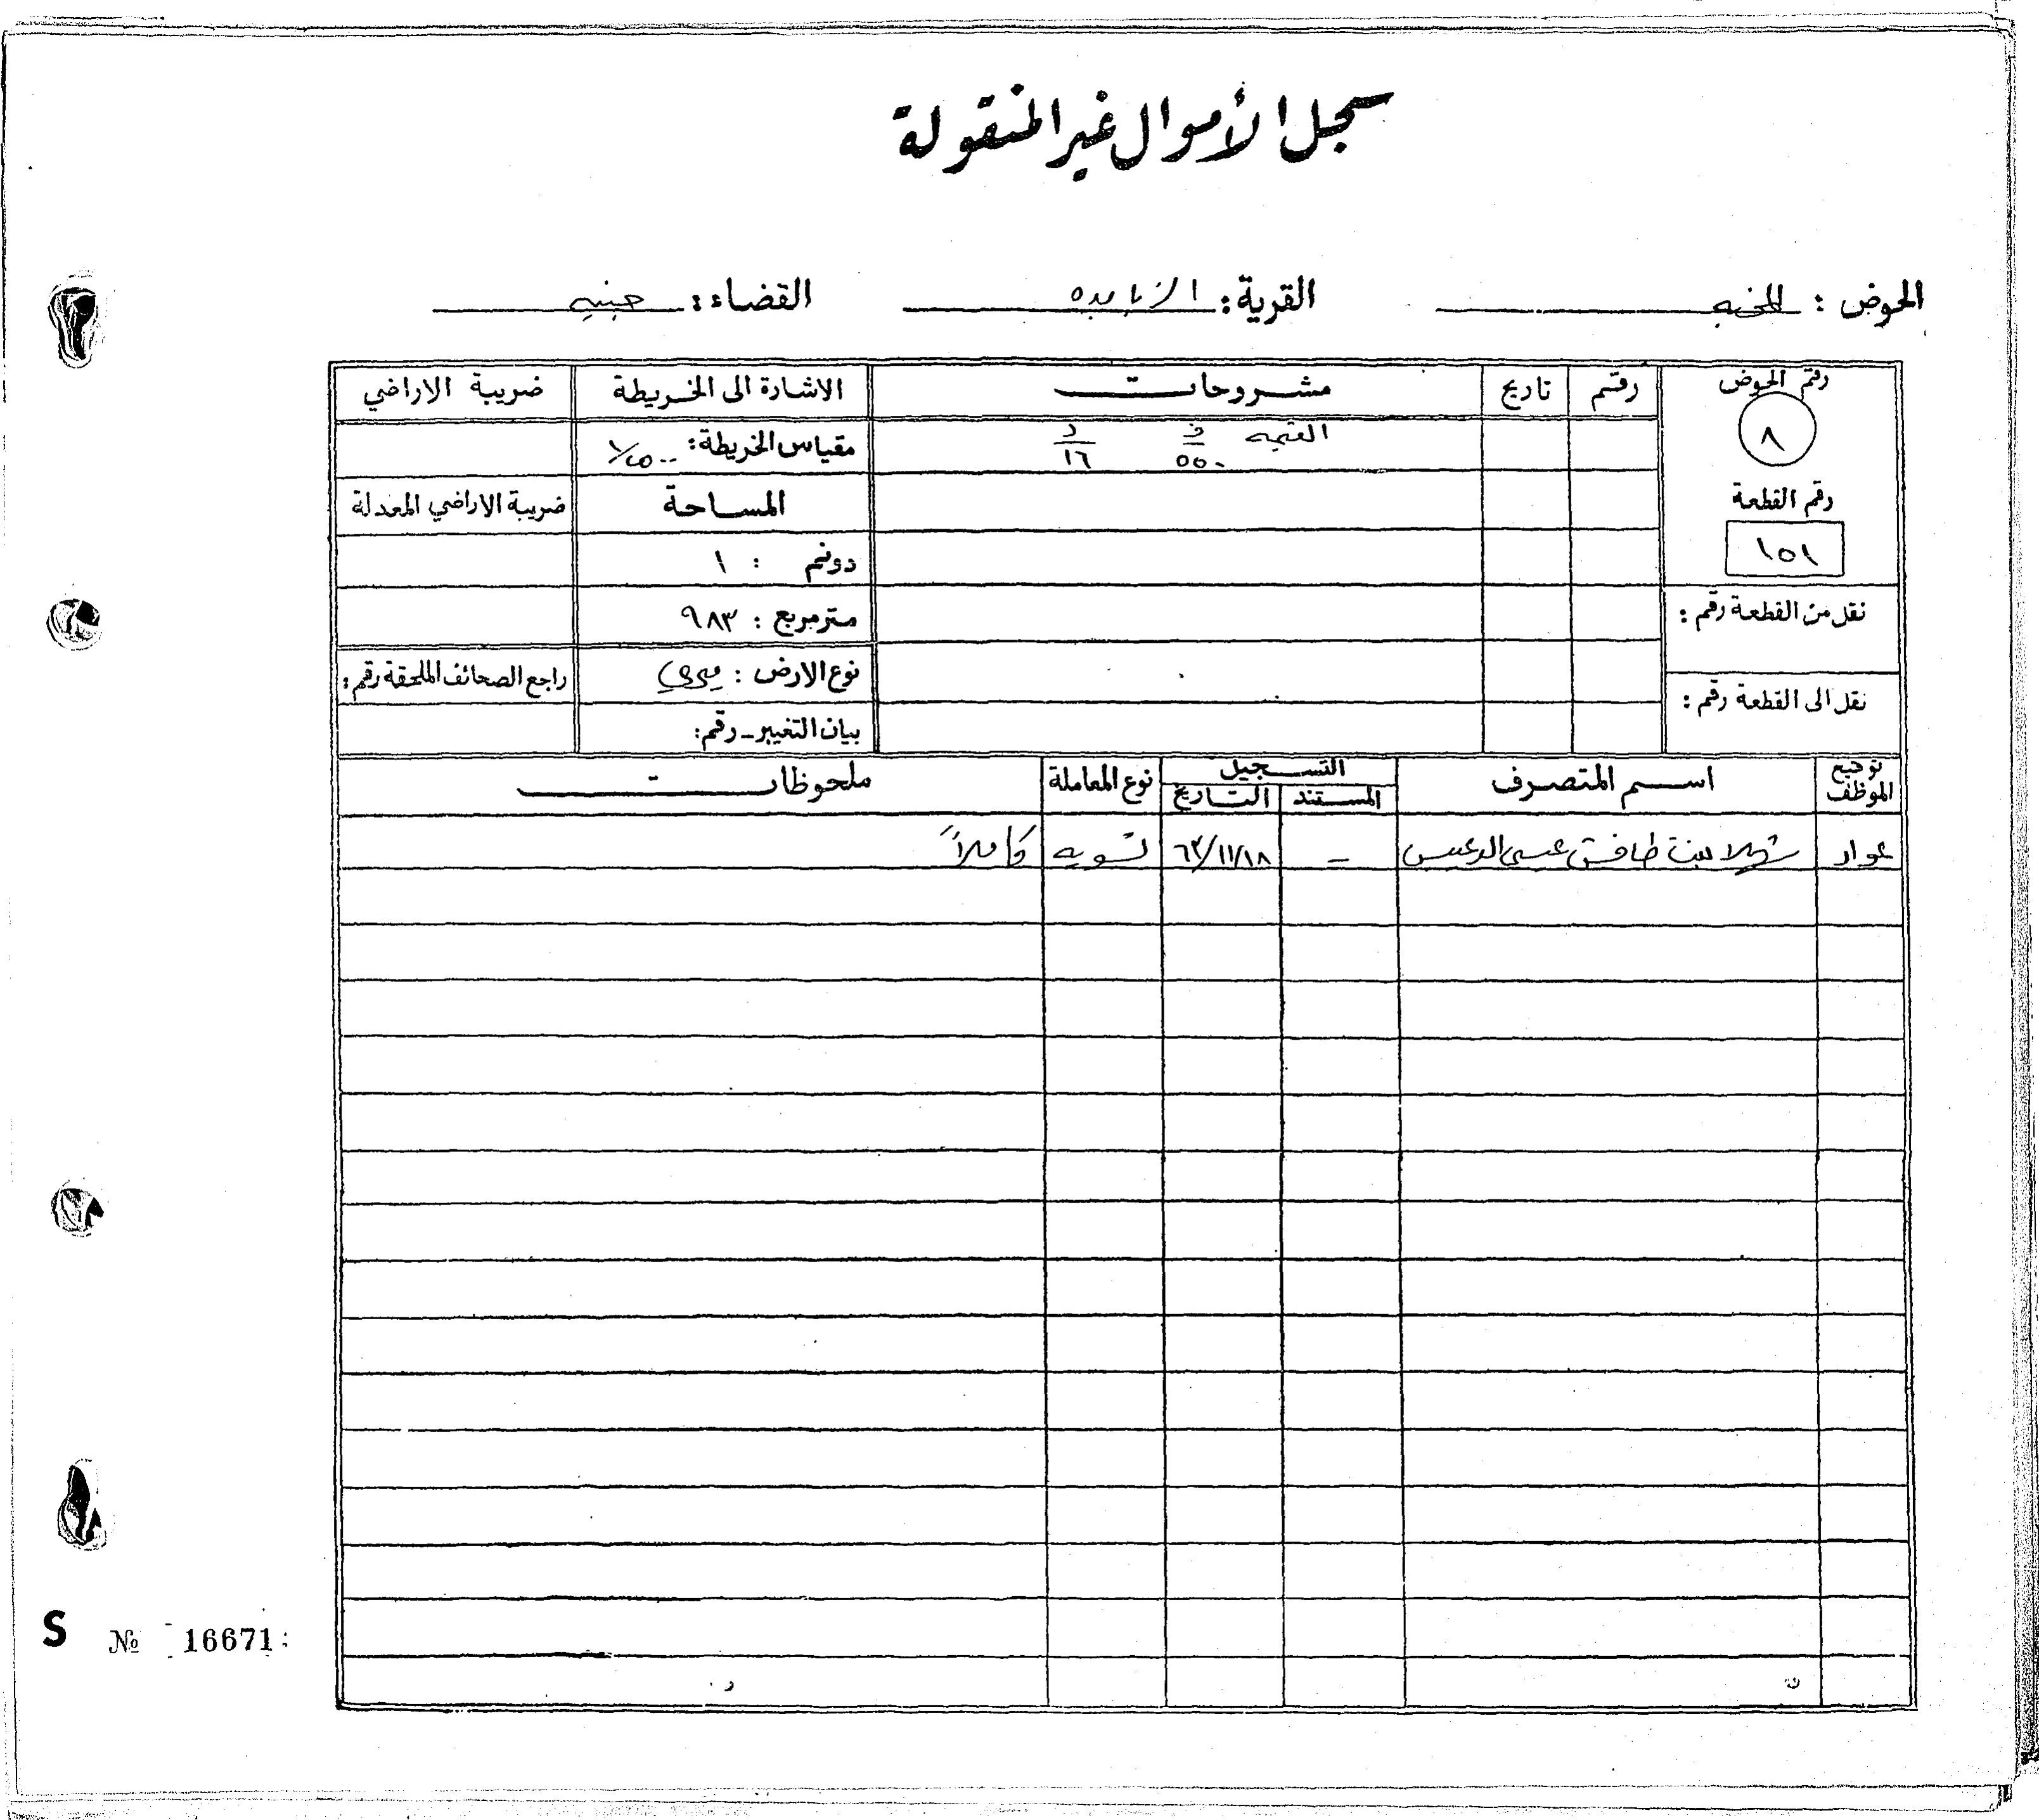 سجل الأموال غير المنقولة
الحوض : القرية : الزبابده القضاء : جنين
رقم الحوض رقم تاريخ مشروحات الاشارة الى الخريطة ضريبة الاراضي
٨ القيمه ف ٥٥٠ د ١٦ مقياس الخريطة : ١/٢٥٠٠
رقم القطعة المساحة ضريبة الاراضي المعدلة
١٥١ دونم : ١
نقل من القطعة رقم : متر مربع : ٩٨٣
نوع الارض : ميري راجع الصحائف الملحقة رقم :
نقل الى القطعة رقم : بيان التغيير - رقم :
توقيع الموظف اسم المتصرف التسجيل نوع المعاملة ملحوظات
المستند التاريخ
عواد شهلا بنت طافش عيسى الدعيس – ٦٣/١١/١٨ تسويه كاملاً
S № 16671